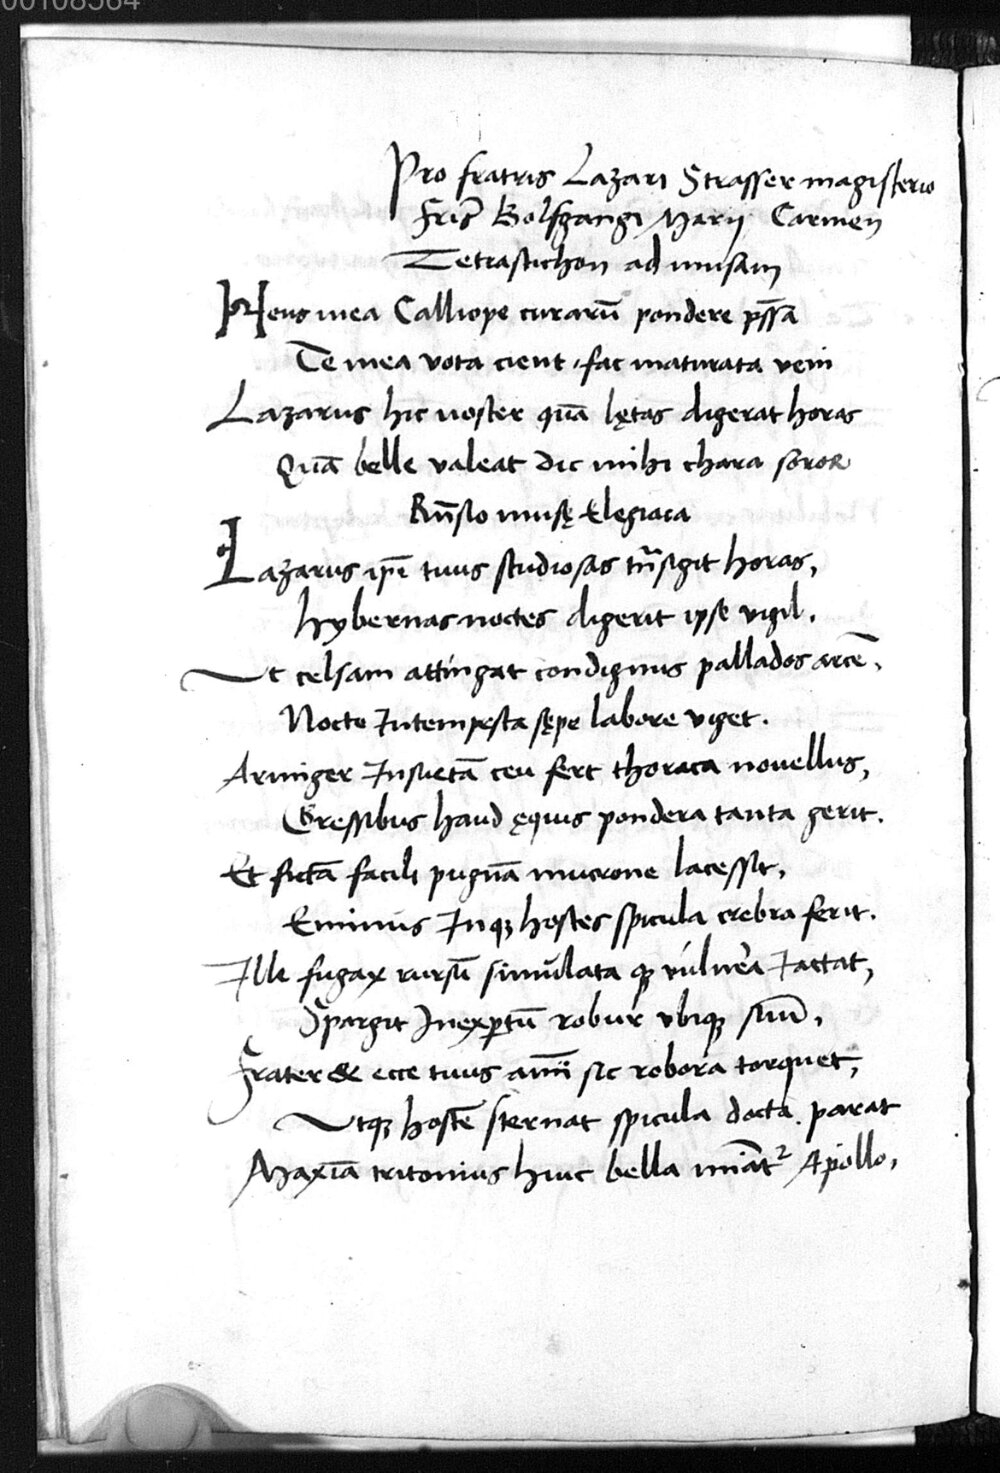 00108564
Pro fratris Lazari Strasser magisterio
Fris Bolfgangi Marij Carmen
Tetrastichon ad musam
Heus mea Calliope curarū pondere p̄ssa
Te mea vota cient, fac maturata veni
Lazarus hic noster quā lętas digerat horas
Quā belle valeat dic mihi chara soror
Rn̄sio musę Elegiaca
Lazarus ip̄e tuus studiosas trn̄sigit horas,
hybernas noctes digerit ipse vigil.
Ut celsam attingat condignus pallados arcē,
Nocte Intempęsta sępe labore viget.
Armiger Insuetā ceu fert thoraca novellus,
Gressibus haud ęquis pondera tanta gerit.
Et fictā facili pugnā mucrone lacessit,
Eminus Inqꝫ hostes spicula crebra ferit.
Ille fugax rursū simulata qꝫ vulnera Iactat,
Spargit Inexꝑtū robur ubiqꝫ suū.
Frater & ecce tuus animi sic robora torquet,
Utqꝫ hostē sternat spicula docta parat
Maxīa tritonius huic bella mīat² Apollo,